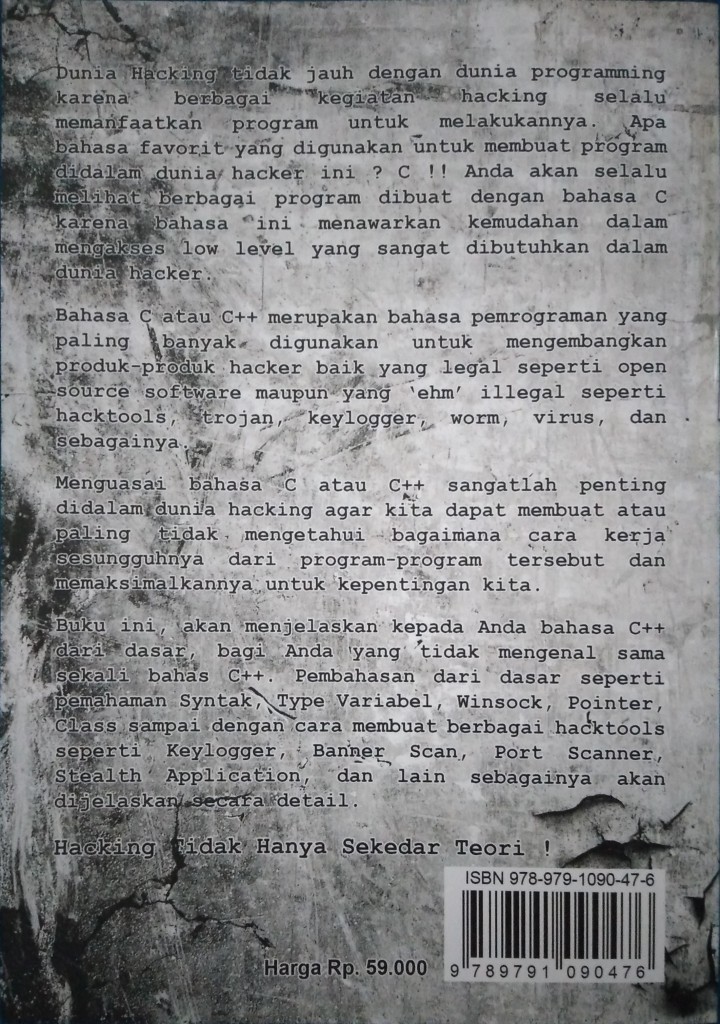 Dunia Hacking tidak jauh dengan dunia programming
karena berbagai kegiatan hacking selalu
memanfaatkan program untuk melakukannya. Apa
bahasa favorit yang digunakan untuk membuat program
didalam dunia hacker ini ? C !! Anda akan selalu
melihat berbagai program dibuat dengan bahasa C
karena bahasa ini menawarkan kemudahan dalam
mengakses low level yang sangat dibutuhkan dalam
dunia hacker.
Bahasa C atau C++ merupakan bahasa pemrograman yang
paling banyak digunakan untuk mengembangkan
produk-produk hacker baik yang legal seperti open
source software maupun yang ‘ehm’ illegal seperti
hacktools, trojan, keylogger, worm, virus, dan
sebagainya.
Menguasai bahasa C atau C++ sangatlah penting
didalam dunia hacking agar kita dapat membuat atau
paling tidak mengetahui bagaimana cara kerja
sesungguhnya dari program-program tersebut dan
memaksimalkannya untuk kepentingan kita.
Buku ini, akan menjelaskan kepada Anda bahasa C++
dari dasar, bagi Anda yang tidak mengenal sama
sekali bahas C++. Pembahasan dari dasar seperti
pemahaman Syntak, Type Variabel, Winsock, Pointer,
Class sampai dengan cara membuat berbagai hacktools
seperti Keylogger, Banner Scan, Port Scanner,
Stealth Application, dan lain sebagainya akan
dijelaskan secara detail.
Hacking Tidak Hanya Sekedar Teori !
ISBN 978-979-1090-47-6
Harga Rp. 59.000
9 789791 090476